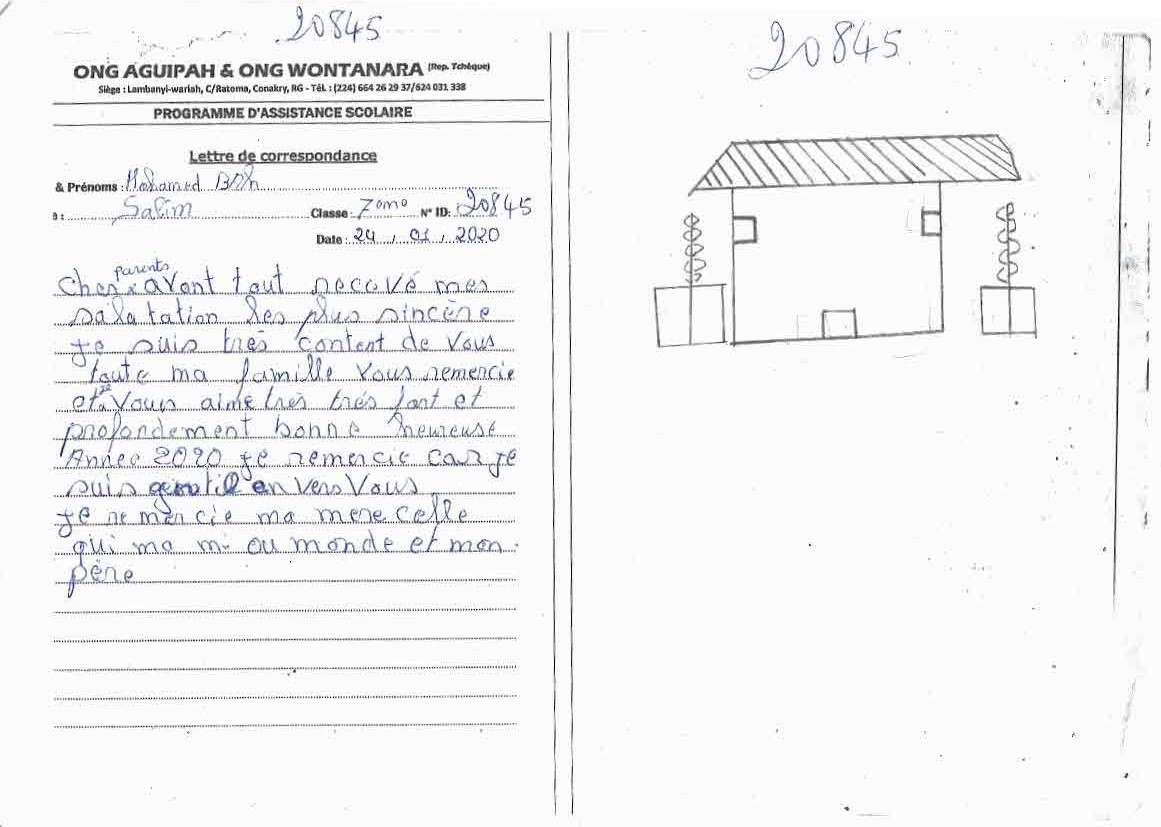 20845
ONG AGUIPAH & ONG WONTANARA (Rep. Tchèque)
Siège : Lambanyi-wariah, C/Ratoma, Conakry, RG - Tél. : (224) 664 26 29 37/624 031 338
PROGRAMME D'ASSISTANCE SCOLAIRE
Lettre de correspondance
& Prénoms : Mohamed
Salim Classe : 7eme N° ID: 20845
Date : 24 / 01 / 2020
parents
Cher avant tout recevé mes
salatation les plus sincère
Je suis très content de vous
toute ma famille vous remercie
et Vous aime très très fort et
profondement bonne heureuse
Année 2020 Je remercie car Je
suis gentil en vers Vous
Je remercie ma mere celle
qui ma mi ou monde et mon
père
20845